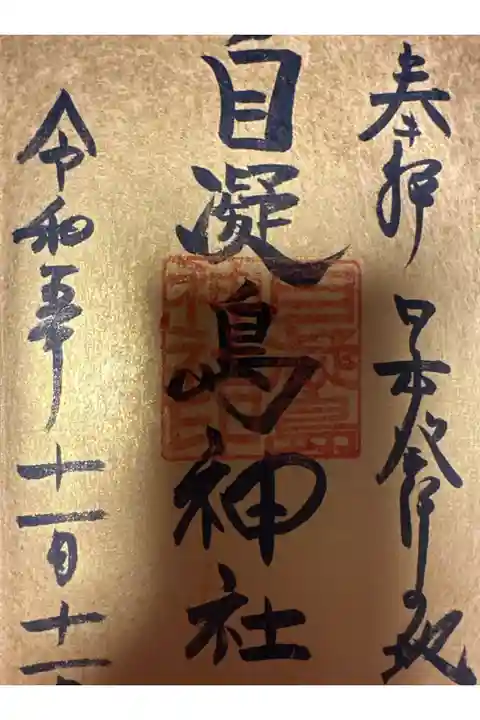 奉拝 日本発祥の地
自凝島神社
令和五年 十一月十一日